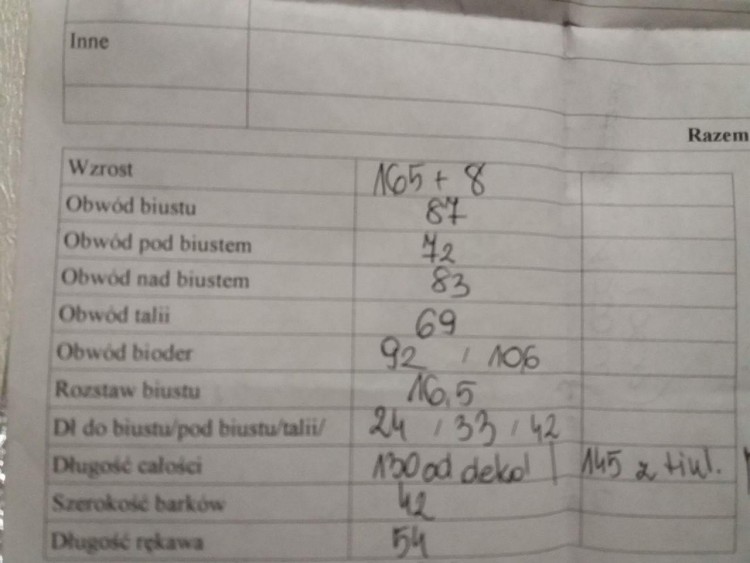 Inne
Razem
Wzrost 165 + 8
Obwód biustu 87
Obwód pod biustem 72
Obwód nad biustem 83
Obwód talii 69
Obwód bioder 92 / 106
Rozstaw biustu 16,5
Dł do biustu/pod biustu/talii/ 24 / 33 / 42
Długość całości 130 od dekol 145 z tiul.
Szerokość barków 42
Długość rękawa 54